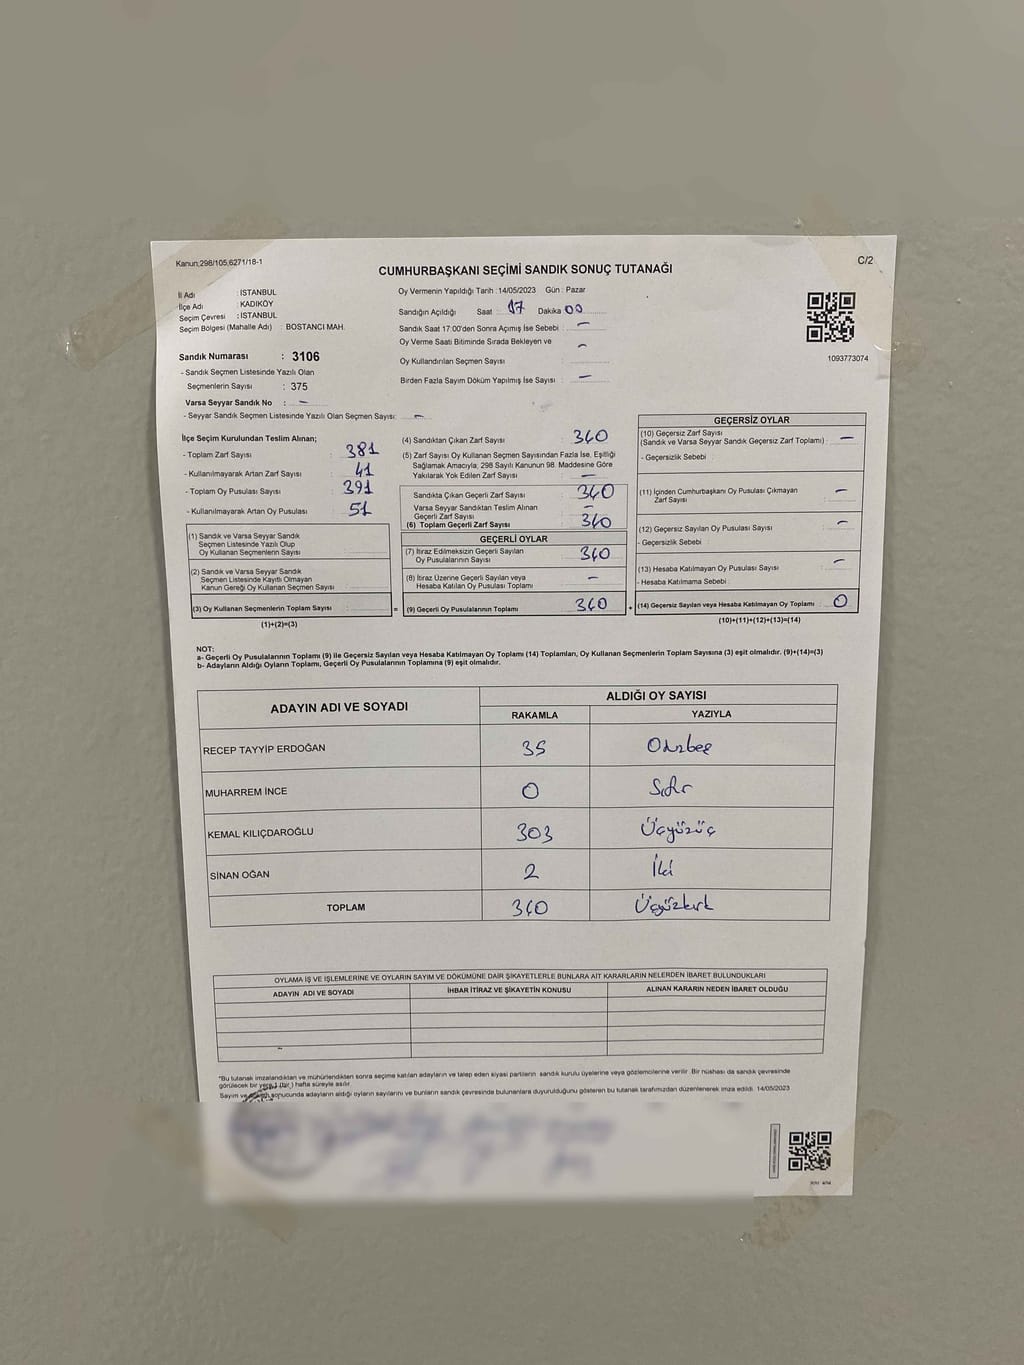 Kanun;298/105;6271/18-1
C/2
CUMHURBAŞKANI SEÇİMİ SANDIK SONUÇ TUTANAĞI
İl Adı : İSTANBUL
İlçe Adı : KADIKÖY
Seçim Çevresi : İSTANBUL
Seçim Bölgesi (Mahalle Adı) : BOSTANCI MAH.
Sandık Numarası : 3106
- Sandık Seçmen Listesinde Yazılı Olan
Seçmenlerin Sayısı : 375
Varsa Seyyar Sandık No : –
- Seyyar Sandık Seçmen Listesinde Yazılı Olan Seçmen Sayısı: –
Oy Vermenin Yapıldığı Tarih :14/05/2023 Gün : Pazar
Sandığın Açıldığı Saat : 17 Dakika 00
Sandık Saat 17:00'den Sonra Açımış İse Sebebi : –
Oy Verme Saati Bitiminde Sırada Bekleyen ve –
Oy Kullandırılan Seçmen Sayısı :
Birden Fazla Sayım Döküm Yapılmış İse Sayısı : –
1093773074
İlçe Seçim Kurulundan Teslim Alınan;
- Toplam Zarf Sayısı : 381
- Kullanılmayarak Artan Zarf Sayısı : 41
- Toplam Oy Pusulası Sayısı : 391
- Kullanılmayarak Artan Oy Pusulası : 51
(1) Sandık ve Varsa Seyyar Sandık
Seçmen Listesinde Yazılı Olup
Oy Kullanan Seçmenlerin Sayısı :
(2) Sandık ve Varsa Seyyar Sandık
Seçmen Listesinde Kayıtlı Olmayan
Kanun Gereği Oy Kullanan Seçmen Sayısı :
(3) Oy Kullanan Seçmenlerin Toplam Sayısı :
(1)+(2)=(3)
(4) Sandıktan Çıkan Zarf Sayısı : 340
(5) Zarf Sayısı Oy Kullanan Seçmen Sayısından Fazla İse, Eşitliği
Sağlamak Amacıyla; 298 Sayılı Kanunun 98. Maddesine Göre
Yakılarak Yok Edilen Zarf Sayısı : –
Sandıkta Çıkan Geçerli Zarf Sayısı : 340
Varsa Seyyar Sandıktan Teslim Alınan
Geçerli Zarf Sayısı : –
(6) Toplam Geçerli Zarf Sayısı : 340
GEÇERLİ OYLAR
(7) İtiraz Edilmeksizin Geçerli Sayılan
Oy Pusulalarının Sayısı : 340
(8) İtiraz Üzerine Geçerli Sayılan veya
Hesaba Katılan Oy Pusulası Toplamı : –
= (9) Geçerli Oy Pusulalarının Toplamı : 340
GEÇERSİZ OYLAR
(10) Geçersiz Zarf Sayısı
(Sandık ve Varsa Seyyar Sandık Geçersiz Zarf Toplamı) : –
- Geçersizlik Sebebi :
(11) İçinden Cumhurbaşkanı Oy Pusulası Çıkmayan
Zarf Sayısı : –
(12) Geçersiz Sayılan Oy Pusulası Sayısı : –
- Geçersizlik Sebebi :
(13) Hesaba Katılmayan Oy Pusulası Sayısı : –
- Hesaba Katılmama Sebebi :
+ (14) Geçersiz Sayılan veya Hesaba Katılmayan Oy Toplamı : 0
(10)+(11)+(12)+(13)=(14)
NOT:
a- Geçerli Oy Pusulalarının Toplamı (9) ile Geçersiz Sayılan veya Hesaba Katılmayan Oy Toplamı (14) Toplamları, Oy Kullanan Seçmenlerin Toplam Sayısına (3) eşit olmalıdır. (9)+(14)=(3)
b- Adayların Aldığı Oyların Toplamı, Geçerli Oy Pusulalarının Toplamına (9) eşit olmalıdır.
ADAYIN ADI VE SOYADI
ALDIĞI OY SAYISI
RAKAMLA YAZIYLA
RECEP TAYYİP ERDOĞAN 35 Otuzbeş
MUHARREM İNCE 0 Sıfır
KEMAL KILIÇDAROĞLU 303 Üçyüzüç
SİNAN OĞAN 2 İki
TOPLAM 340 Üçyüzkırk
OYLAMA İŞ VE İŞLEMLERİNE VE OYLARIN SAYIM VE DÖKÜMÜNE DAİR ŞİKAYETLERLE BUNLARA AİT KARARLARIN NELERDEN İBARET BULUNDUKLARI
ADAYIN ADI VE SOYADI İHBAR İTİRAZ VE ŞİKAYETİN KONUSU ALINAN KARARIN NEDEN İBARET OLDUĞU
"Bu tutanak imzalandıktan ve mühürlendikten sonra seçime katılan adayların ve talep eden siyasi partilerin sandık kurulu üyelerine veya gözlemcilerine verilir. Bir nüshası da sandık çevresinde
görülecek bir yere 1 (bir ) hafta süreyle asılır.
Sayım ve sonucunda adayların aldığı oyların sayılarını ve bunların sandık çevresinde bulunanlara duyurulduğunu gösteren bu tutanak tarafımızdan düzenlenerek imza edildi. 14/05/2023